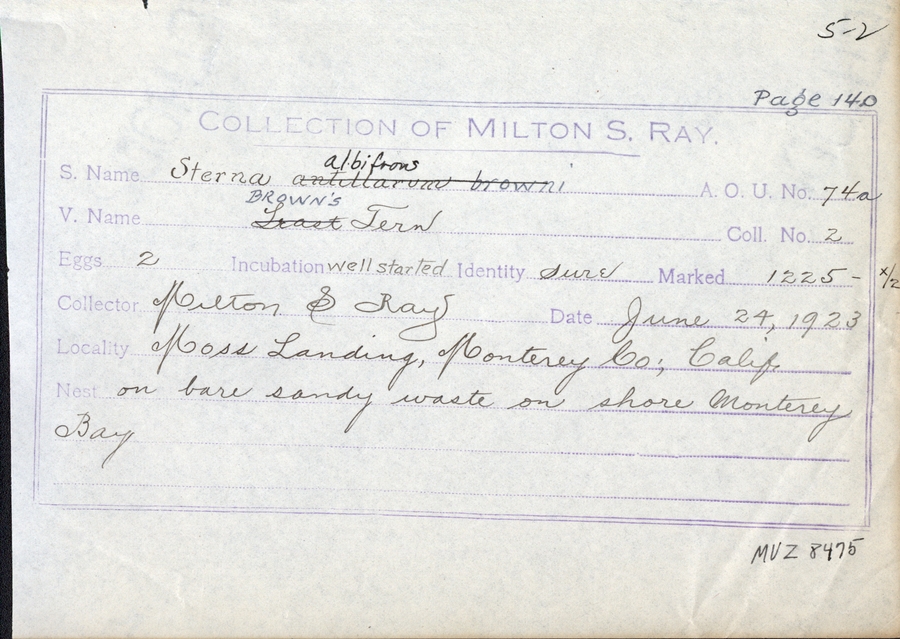 5-2
Page 140
COLLECTION OF MILTON S. RAY.
albifrons
S. Name Sterna antillarum browni A. O. U. No. 74a
BROWN'S
V. Name Least Tern Coll. No. 2
Eggs 2 Incubation well started Identity sure Marked 1225- x/2
Collector Milton S Ray Date June 24, 1923
Locality Moss Landing, Monterey Co; Calif.
Nest on bare sandy waste on shore Monterey
Bay
MVZ 8475